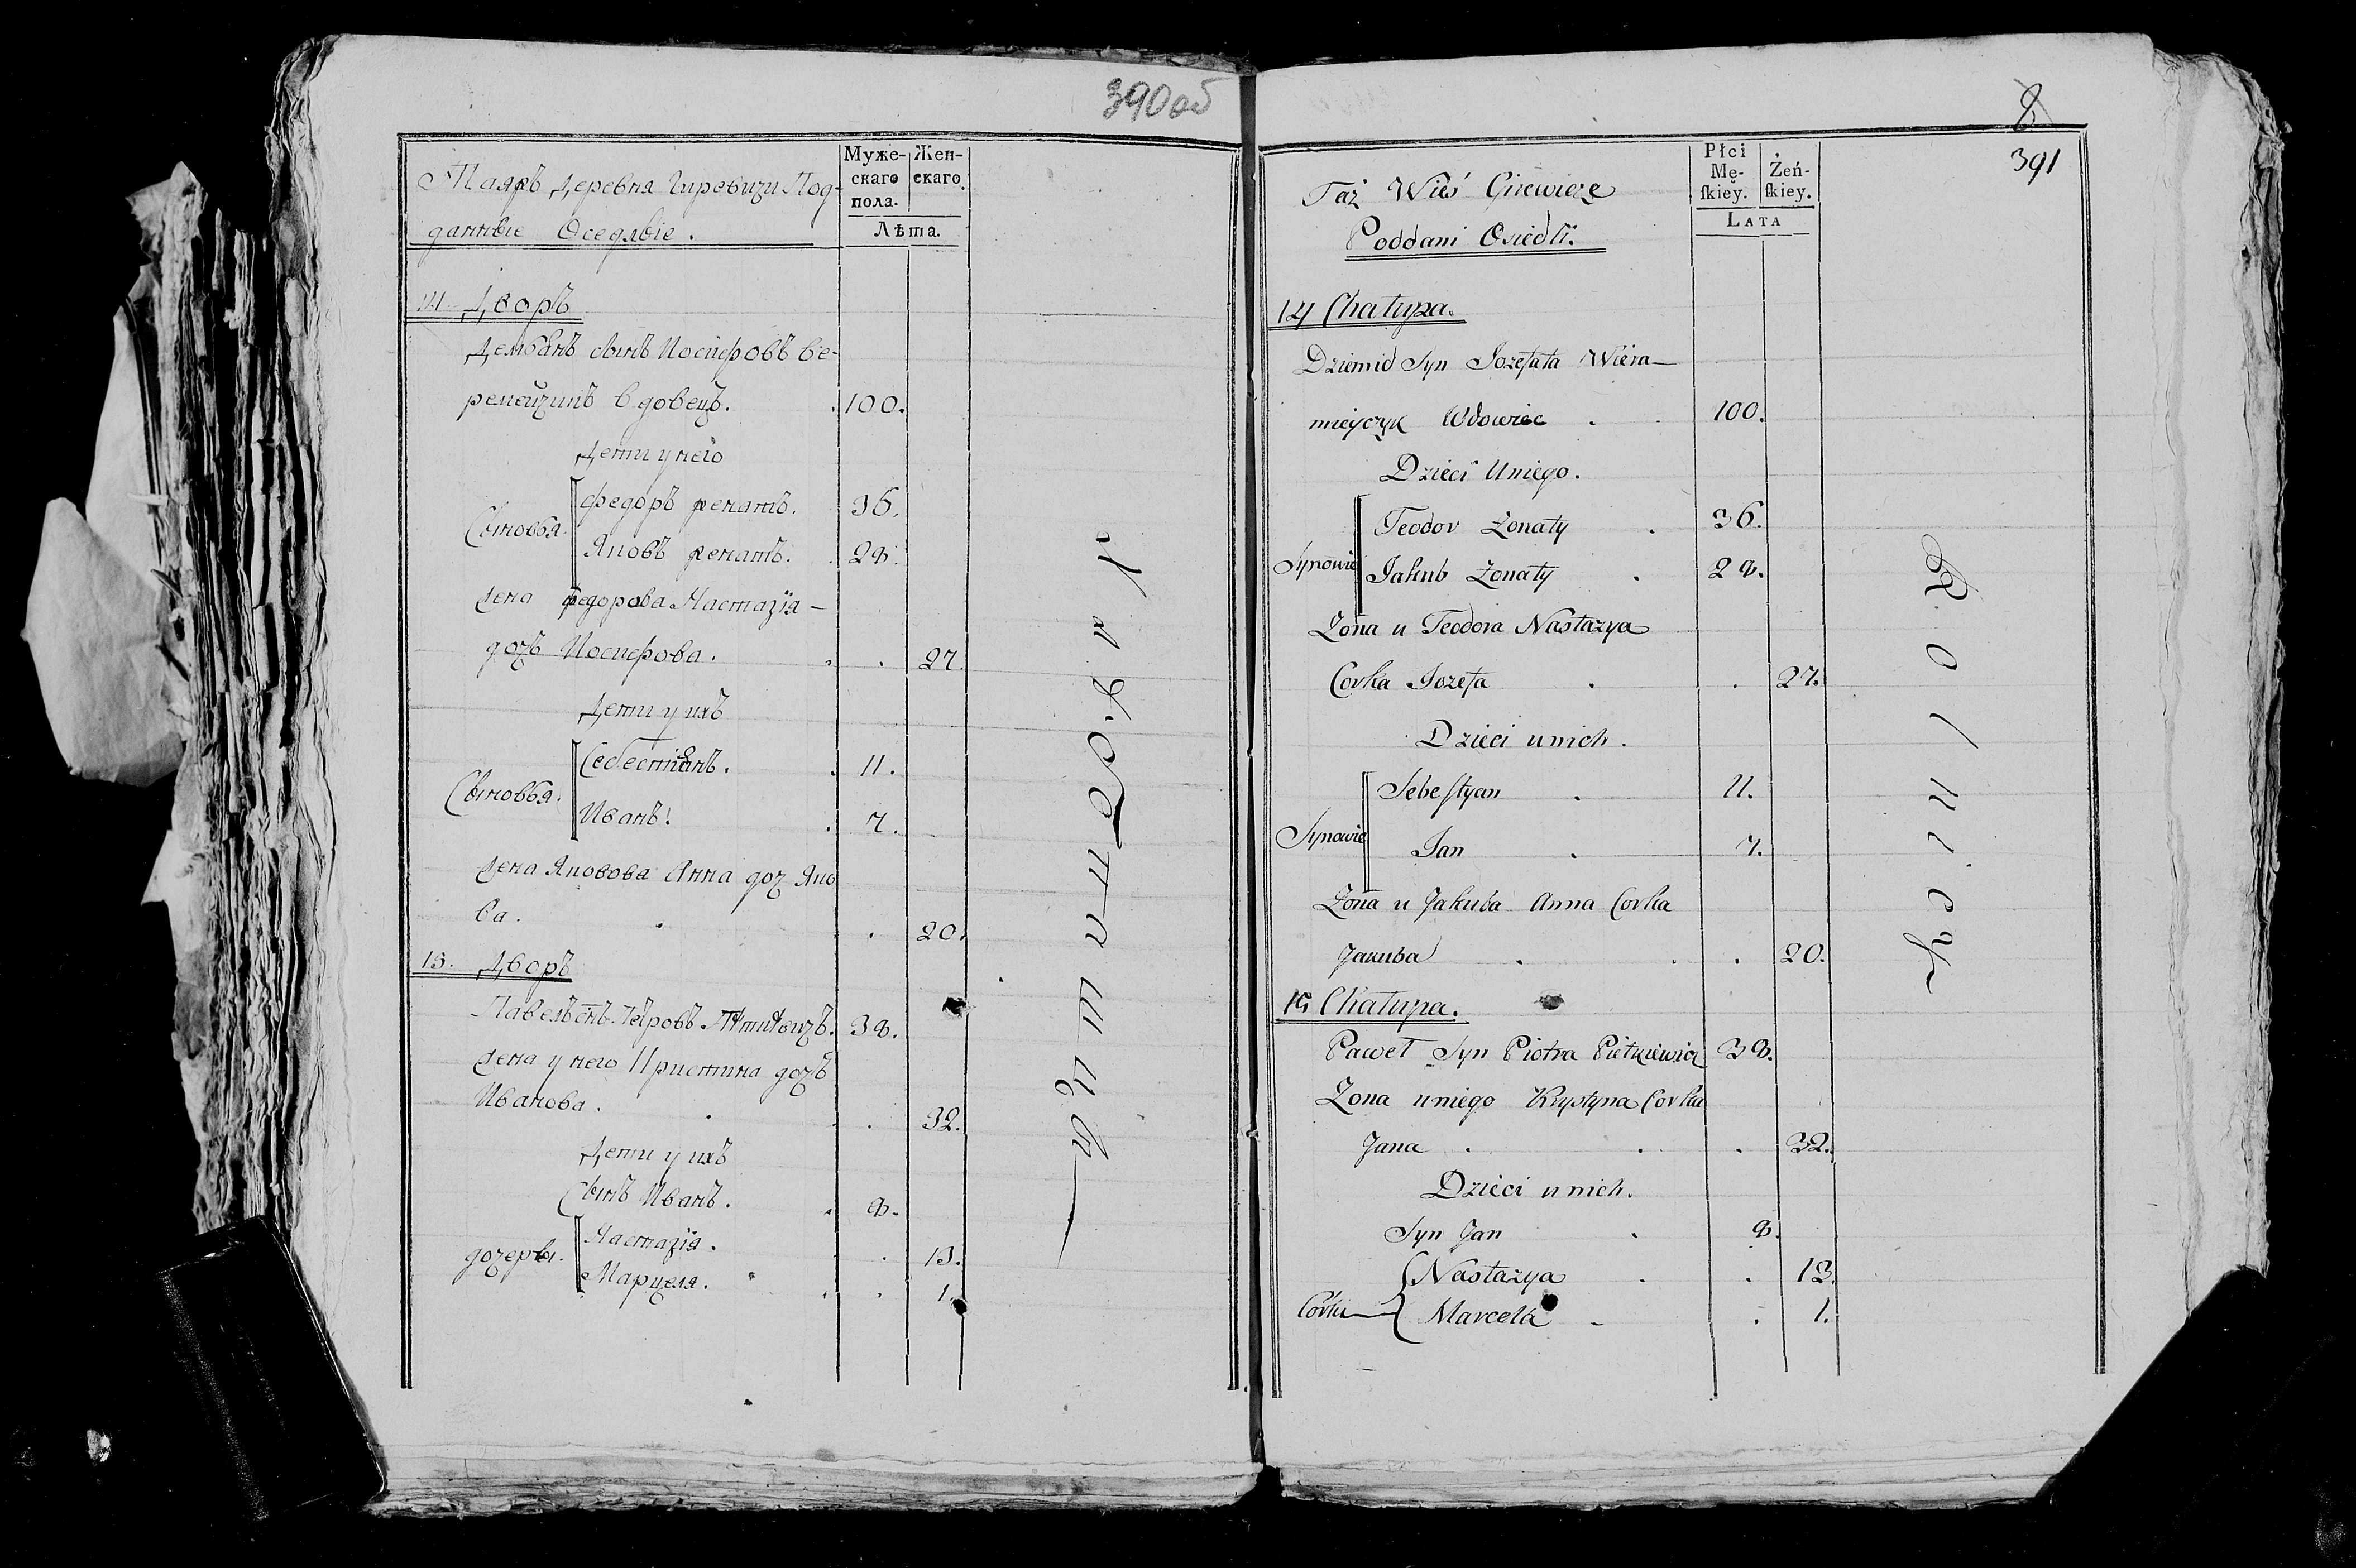 390 об
Таяжъ Деревня Гиревичи Под-
данные Оседлые.
Муже-
скаго
пола.
Жен-
скаго.
Лѣта.
14 Дворъ
Демьянъ сынъ Иосифовъ Ве-
ремейчикъ вдовецъ. 100.
Дети у него
Сыновья.
Федоръ женатъ. 36.
Яковъ женатъ. 28.
Жена Федорова Настазїя
дочь Иосифова. 27
Дети у ихъ
Сыновья.
Себестїянъ. 11.
Иванъ. 7.
Жена Яковова Анна доч Яко
ва. 20.
15. Дворъ
Павелъ снъ Петровъ 38.
Жена у него Кристина дочь
Иванова. 32.
Дети у ихъ
Сынъ Иванъ. 8.
дочеры.
Настазїя. 13.
Марцеля. 1.
8
391
Taż Wieś Girewicze
Poddani Osiedli.
Płci
Mę-
skiey.
Żeń-
skiey.
LATA
14 Chałupa.
Dziemid Syn Jozefata Wiera-
mieyczyk Wdowiec 100.
Dzieci Uniego.
Synowie
Teodor Żonaty 36.
Jakub Żonaty 28.
Żona u Teodora Nastazya
Corka Jozefa 27.
Dzieci unich.
Synowie
Sebestyan 11.
Jan 7.
Żona u Jakuba Anna Corka
Jakuba 20.
15 Chałupa.
Paweł Syn Piotra Pietkiewicz 38.
Żona uniego Krystyna Corka
Jana 32.
Dzieci unich.
Syn Jan 8.
Corki
Nastazya 13.
Marcella 1.
Rolnicy